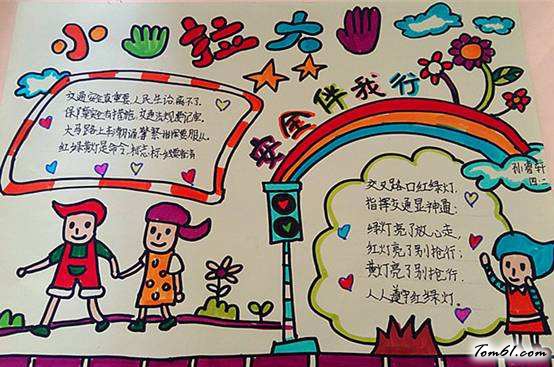 小拉大
安全伴我行
交通安全真重要,人民生活离不了.
保护安全有措施,交通法规要记牢.
大马路上 警察指挥要服从
红绿黄灯是命令,标志标线要看清
交叉路口红绿灯,
指挥交通显神通;
绿灯亮了放心走,
红灯亮了别抢行;
黄灯亮了别抢行,
人人遵守红绿灯.
孙睿轩
四.二
Tom61.com